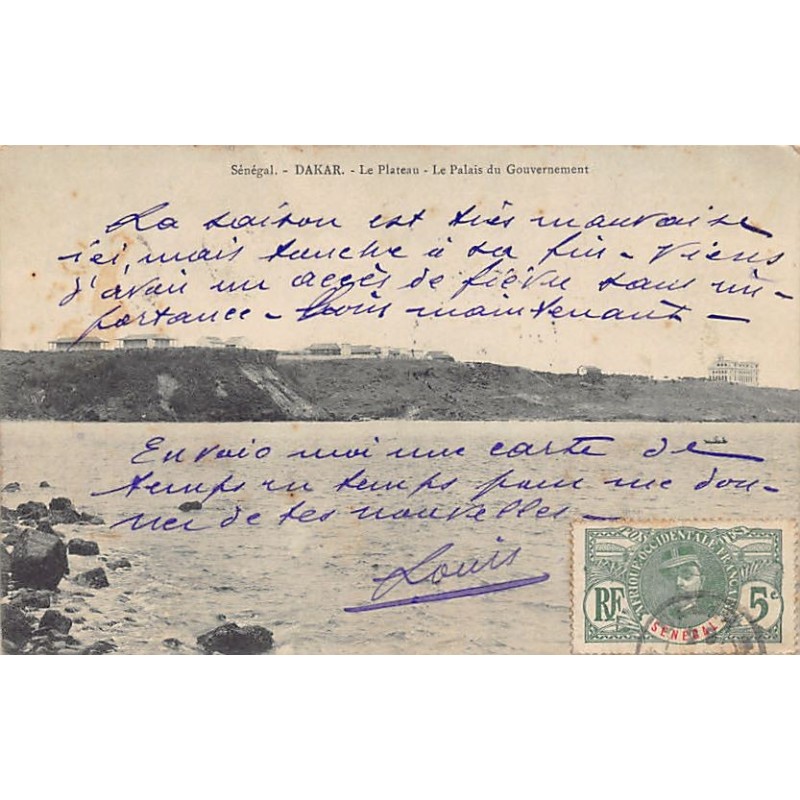 Sénégal. - DAKAR. - Le Plateau - Le Palais du Gouvernement
La saison est très mauvaise
ici, mais touche à sa fin - Viens
d'avoir un accès de fièvre sans im-
portance - bois maintenant -
Envoie moi une carte de
temps en temps pour me don-
ner de tes nouvelles -
Louis
AFRIQUE OCCIDENTALE FRANÇAISE
RF
5c
SÉNÉGAL